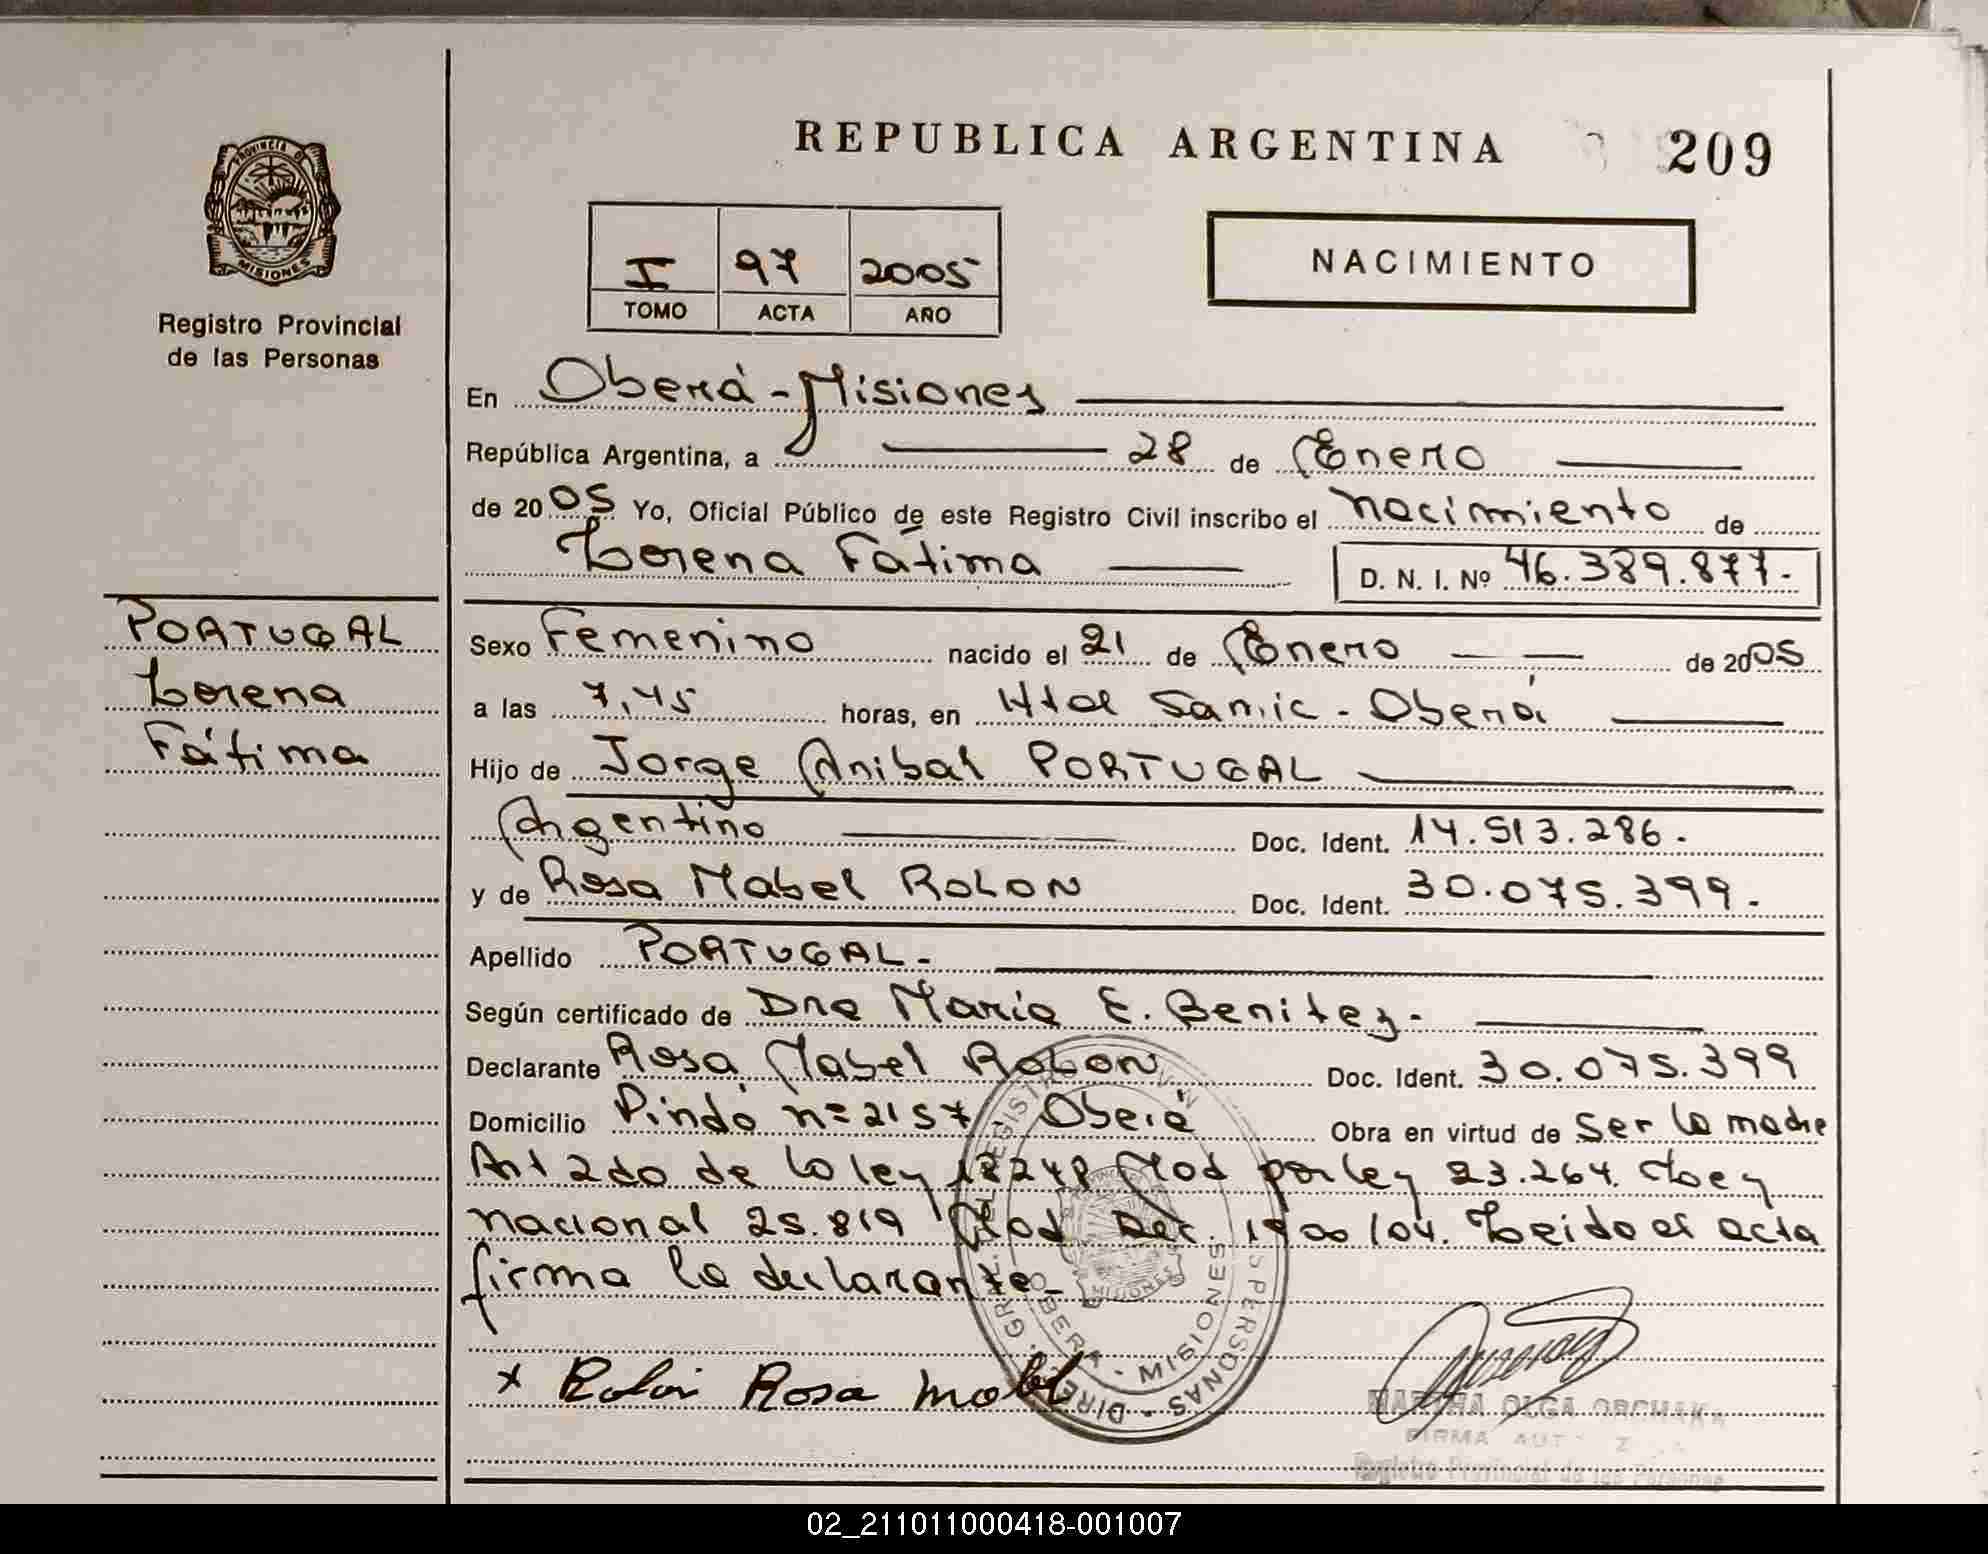 REPUBLICA ARGENTINA 209
PROVINCIA DE
MISIONES
Registro Provincial
de las Personas
I 97 2005
TOMO ACTA AÑO
NACIMIENTO
En Oberá - Misiones
República Argentina, a 28 de Enero
de 2005 Yo, Oficial Público de este Registro Civil inscribo el nacimiento de
Lorena Fátima D. N. I. Nº 46.389.877.-
PORTUGAL
Lorena
Fátima
Sexo Femenino nacido el 21 de Enero de 2005
a las 7,45 horas, en Htal Samic - Oberá
Hijo de Jorge Anibal PORTUGAL
Argentino Doc. Ident. 14.513.286.-
y de Rosa Mabel ROLON Doc. Ident. 30.075.399.-
Apellido PORTUGAL.-
Según certificado de Dra Maria E. Benitez.-
Declarante Rosa Mabel ROLON Doc. Ident. 30.075.399
Domicilio Pindó n= 2157 Oberá Obra en virtud de Ser la madre
Art 2do de la ley 18248 Mod por ley 23.264.
nacional 25.819 Mod Dec. 1900/04. Leido el acta
firma la declarante.-
x Rolon Rosa Mabel
OBERA - MISIONES
MARTHA OLGA
FIRMA
Registro Provincial de las Personas
02_211011000418-001007